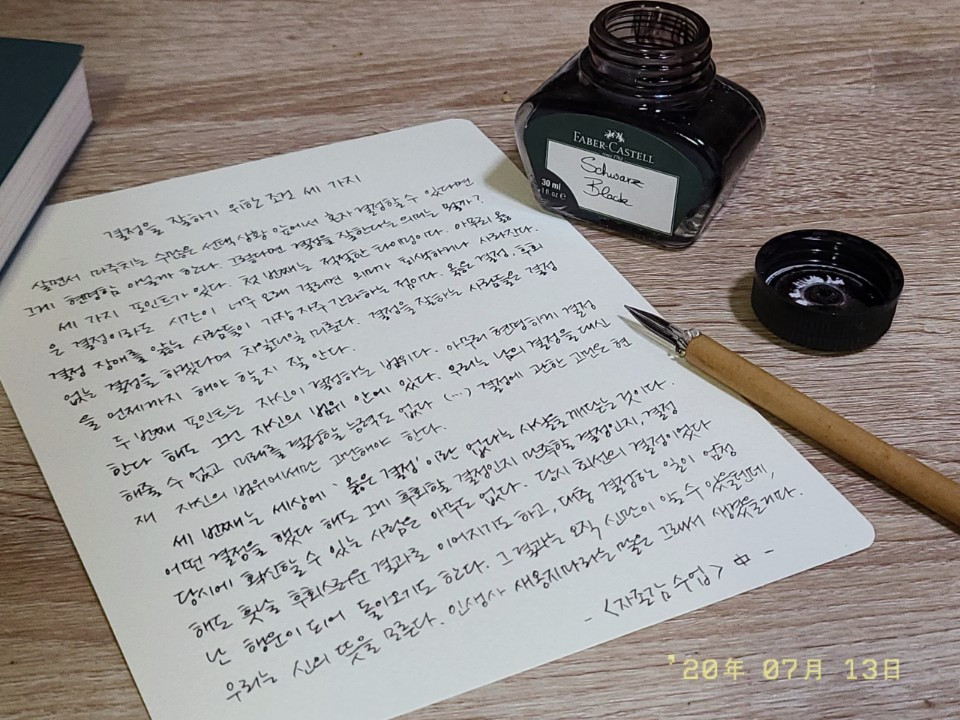 결정을 잘하기 위한 조건 세 가지
살면서 마주치는 수많은 선택 상황 앞에서 혼자 결정할 수 있다면
그게 현명함 아닐까 한다. 그렇다면 결정을 잘한다는 의미는 뭘까?
세 가지 포인트가 있다. 첫 번째는 적절한 타이밍이다. 아무리 옳
은 결정이라도 시간이 너무 오래 걸리면 의미가 퇴색하거나 사라진다.
결정 장애를 앓는 사람들이 가장 자주 간과하는 점이다. 옳은 결정, 후회
없는 결정을 하겠다며 차일피일 미룬다. 결정을 잘하는 사람들은 결정
을 언제까지 해야 할지 잘 안다.
두 번째 포인트는 자신이 결정하는 범위다. 아무리 현명하게 결정
한다 해도 그건 자신의 범위 안에 있다. 우리는 남의 결정을 대신
해줄 수 없고 미래를 결정할 능력도 없다 (...) 결정에 관한 고민은 현
재 자신의 범위에서만 고민해야 한다.
세 번째는 세상에 '옳은 결정'이란 없다는 사실을 깨닫는 것이다.
어떤 결정을 했다 해도 그게 후회할 결정인지 만족할 결정인지, 결정
당시에 확신할 수 있는 사람은 아무도 없다. 당시 최선의 결정이었다
해도 훗날 후회스러운 결과로 이어지기도 하고, 대충 결정한 일이 엄청
난 행운이 되어 돌아오기도 한다. 그 결과는 오직 신만이 알 수 있을텐데,
우리는 신의 뜻을 모른다. 인생사 새옹지마라는 말은 그래서 생겼을리다.
- <자존감 수업> 中 -
FABER-CASTELL
since 1761
Schwarz
Black
30 ml
1 fl. oz ℮
'20年 07月 13日